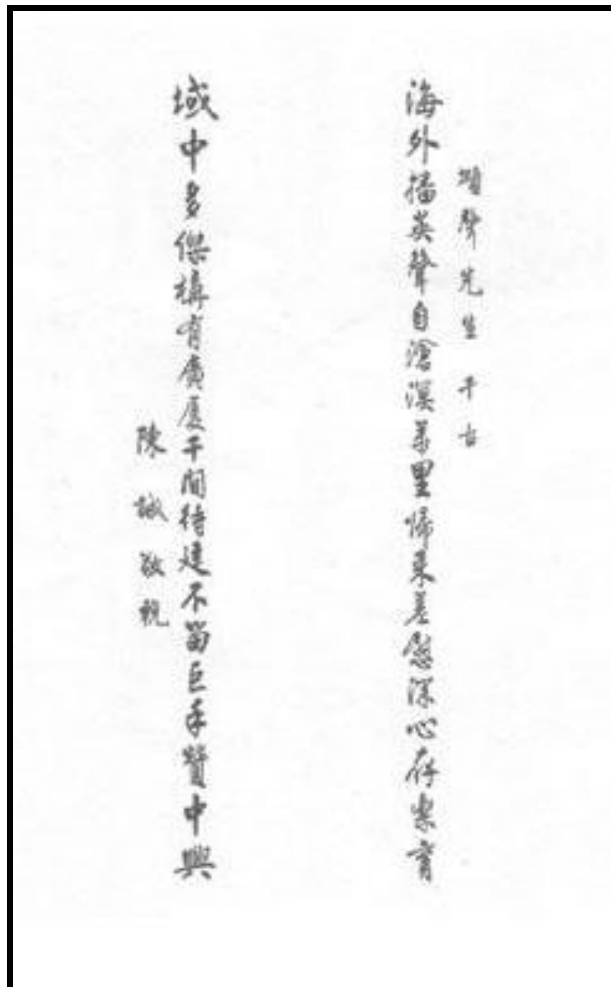 頌聲先生 千古
海外播英聲自滄溟萬里歸來差慰深心存樂育
域中多傑構有廣廈千間待建不留巨手贊中興
陳誠敬輓